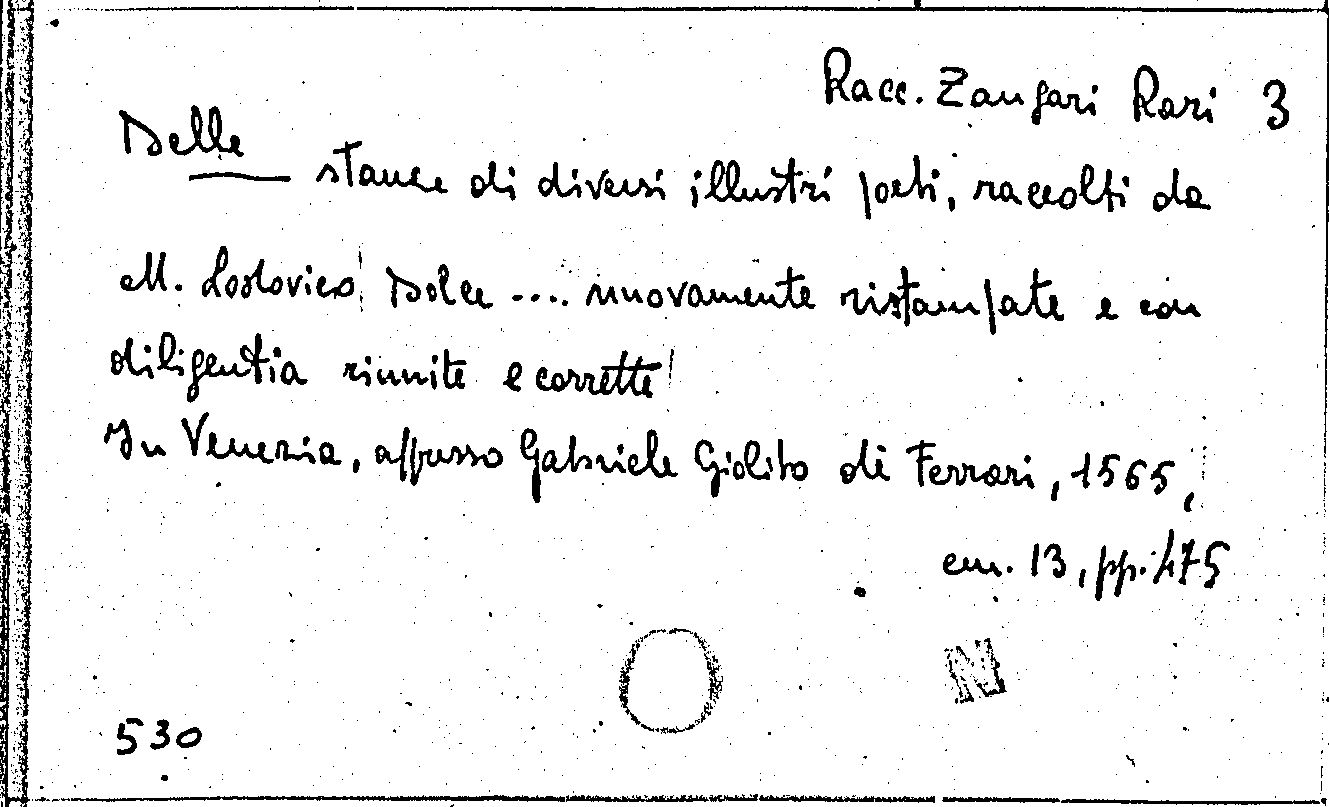 Racc. Zangari Rari 3
Delle
stanze di diversi illustri poeti, raccolti da
M. Lodovico Dolce .... nuovamente ristampate e con
diligentia riunite e corrette
In Venezia, appresso Gabriele Giolito de Ferrari, 1565,
cm. 13, pp. 475
N
530